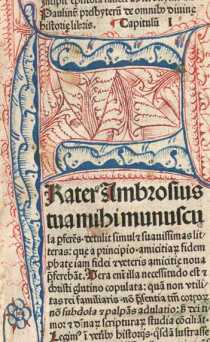 Paulinū presbyterū de omnibus diuine
historie libris. Capitulū I
Frater Ambrosius
tua mihi munuscu
la pferēs. detulit simul et suauissimas lit
teras: que a principio amicitiaꝝ fidem
phate iam fidei et veteris amicitie noua
pferebāt. Uera em̄ illa necessitudo est et
christi glutino copulata: quā non vtili-
tas rei familiaris: nō pn̄tia tm̄ corpoꝝ
nō subdola et palpās adulatio: sꝫ dei ti-
mor et diuinaꝝ scripturaꝝ studia cōciliāt.
Legimꝰ i veteribꝰ historijs. qsdā lustrasse